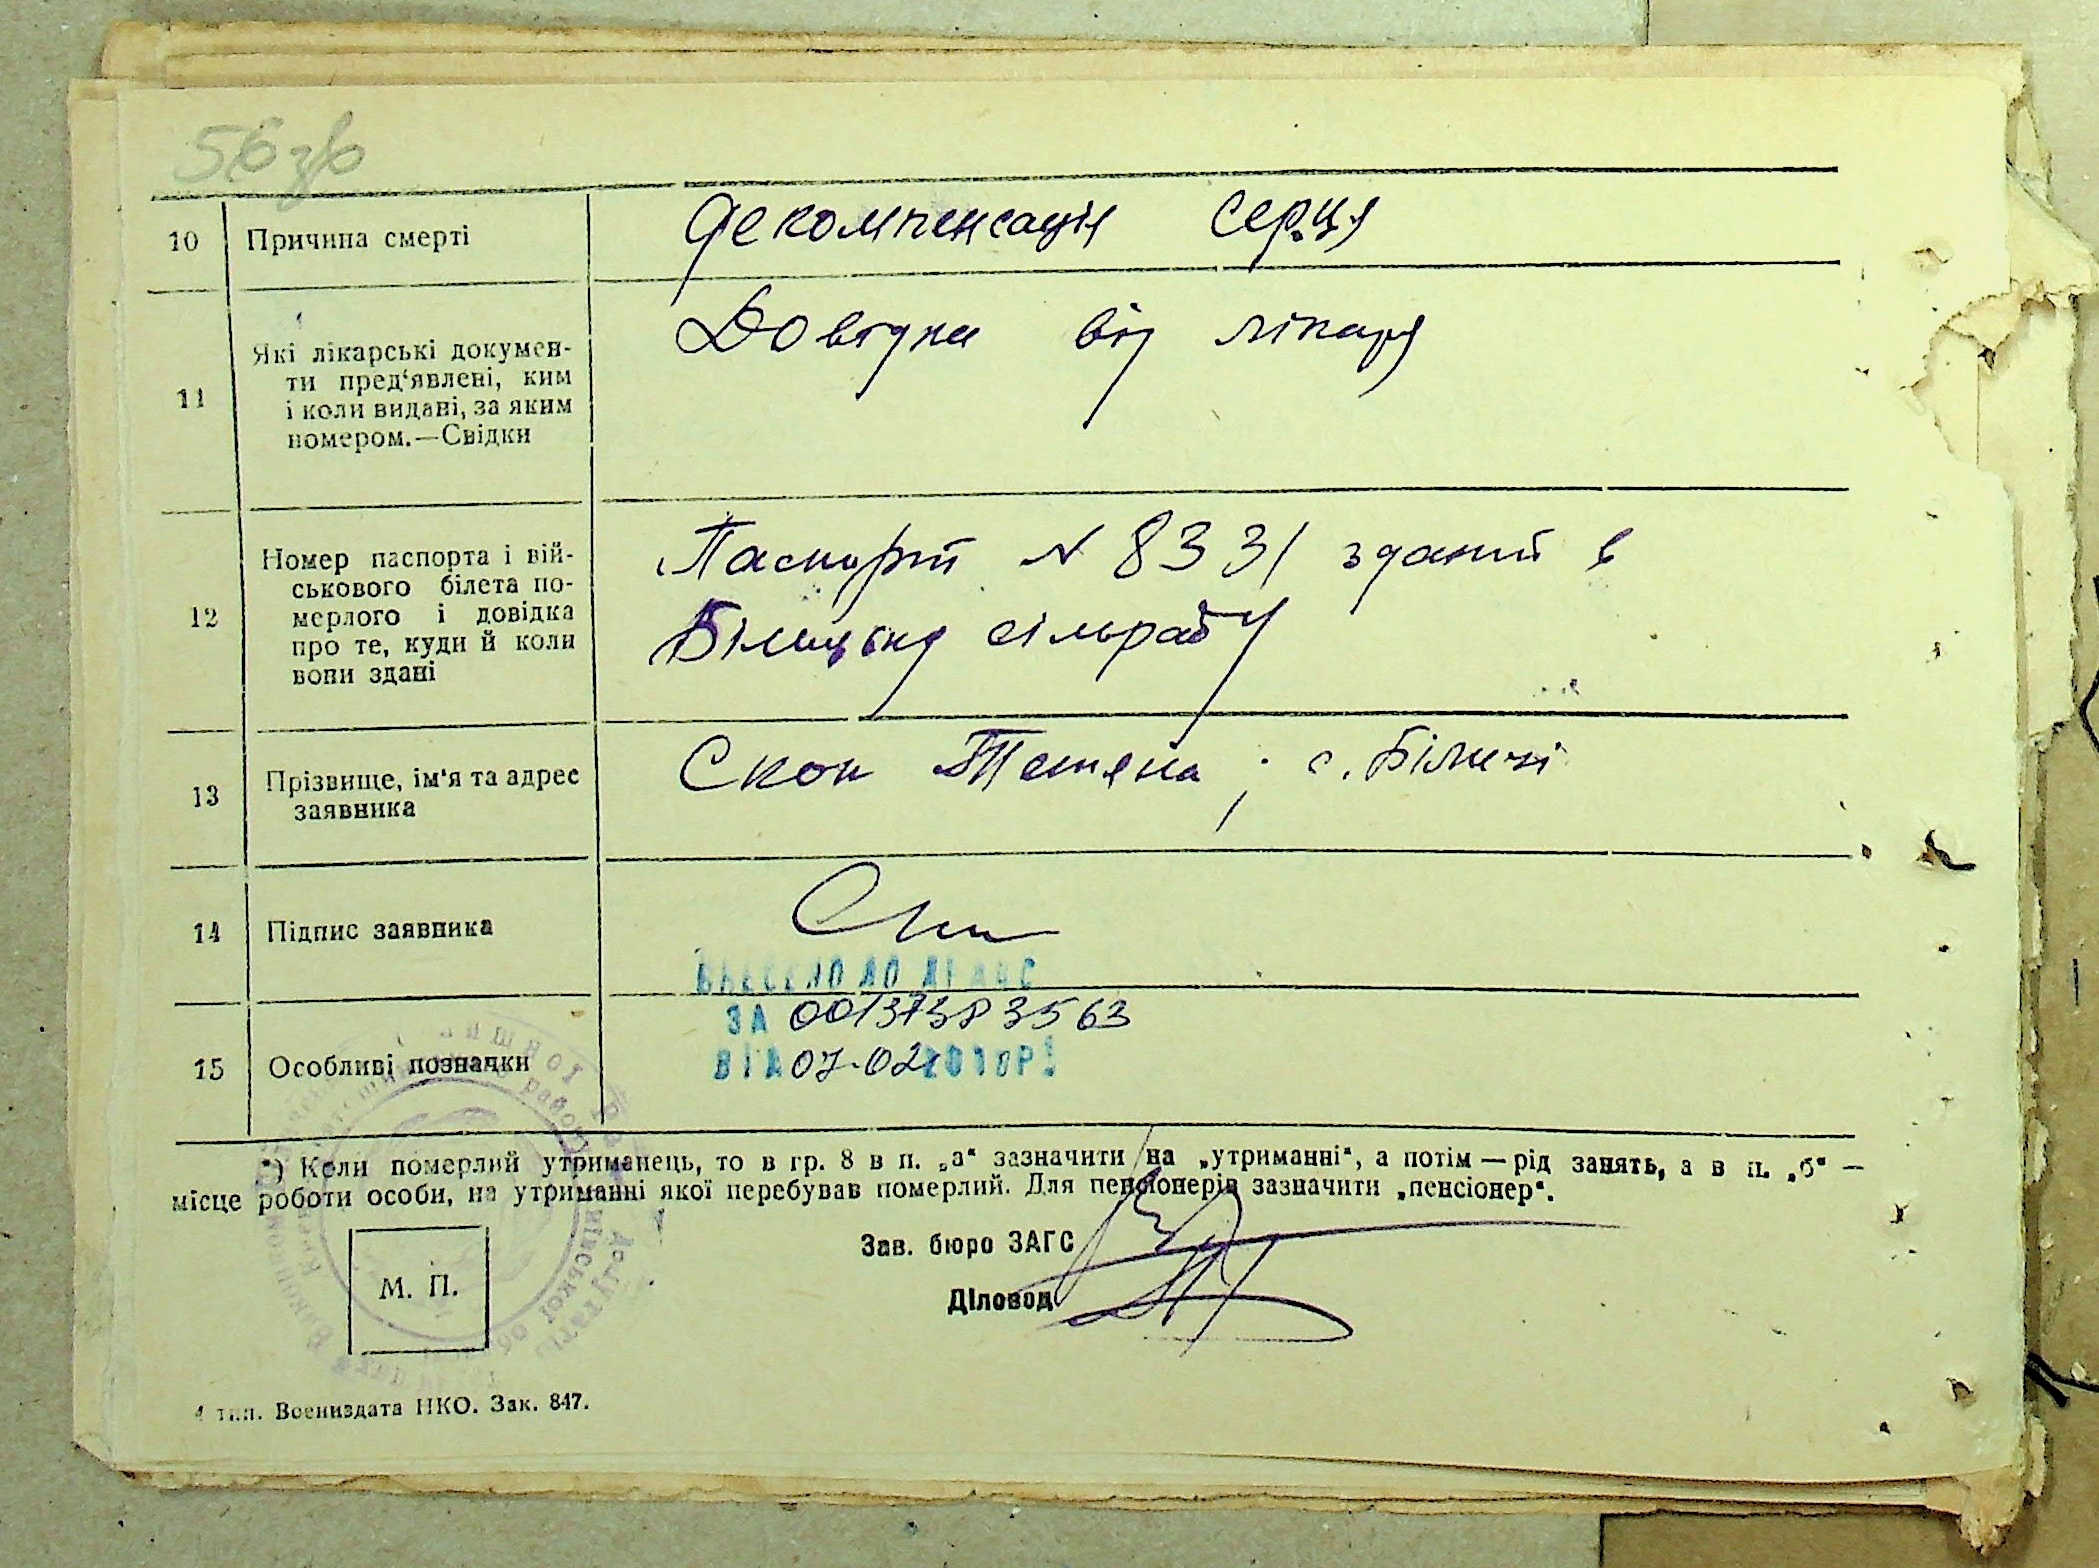 56 зв
10 Причина смерті
Декомпенсація серця
11 Які лікарські докумен-
ти пред'явлені, ким
і коли видані, за яким
номером.—Свідки
Довідка від лікаря
12 Номер паспорта і вій-
ськового білета по-
мерлого і довідка
про те, куди й коли
вони здані
Паспорт N 8331 зданий в
Білицьку сільраду
13 Прізвище, ім'я та адрес
заявника
Скок Тетяна; с. Біличі
14 Підпис заявника
ВНЕСЕНО ДО ДРАЦС
ЗА 00137383563
15 Особливі позначки
ВІД 07.02 2018Р.
*) Коли померлий утриманець, то в гр. 8 в п. „а“ зазначити на „утриманні“, а потім — рід занять, а в п. „б“ —
місце роботи особи, на утриманні якої перебував померлий. Для пенсіонерів зазначити „пенсіонер“.
Зав. бюро ЗАГС
М. П.
Діловод
4 тип. Воениздата НКО. Зак. 847.